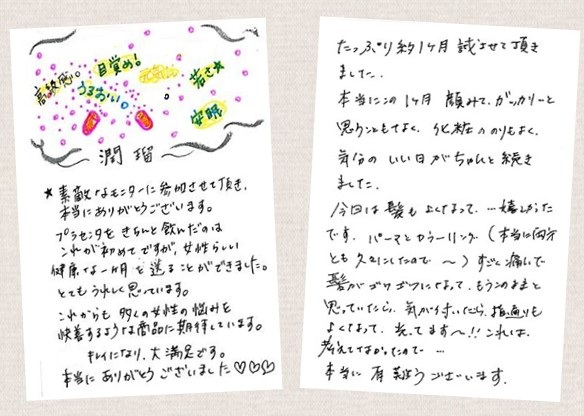 高級感
目覚め！
うるおい
若さ★
安眠
潤瑠
★素敵なモニターに参加させて頂き、
本当にありがとうございます。
プラセンタをきちんと飲んだのは
これが初めてですが、女性らしい
健康な一ヶ月を送ることができました。
とてもうれしく思っています。
これからも多くの女性の悩みを
改善するような商品に期待しています。
キレイになり、大満足です。
本当にありがとうございました♡♡♡
たっぷり約1ヶ月試させて頂き
ました。
本当にこの1ヶ月 顔みて、ガッカリーと
思うこともなく、化粧ののりもよく、
気分のいい日がちゃんと続き
ました。
今回は髪もよくなって、…嬉しかった
です。パーマとカラーリング、(本当に両方
とも久々にしたので〜)すごく痛いで
髪がゴワゴワになって、もうこのままと
思っていたら、気が付いたら、指通りも
よくなって、光ってます〜!! これは、
考えてなかったので…
本当に有難うございます。